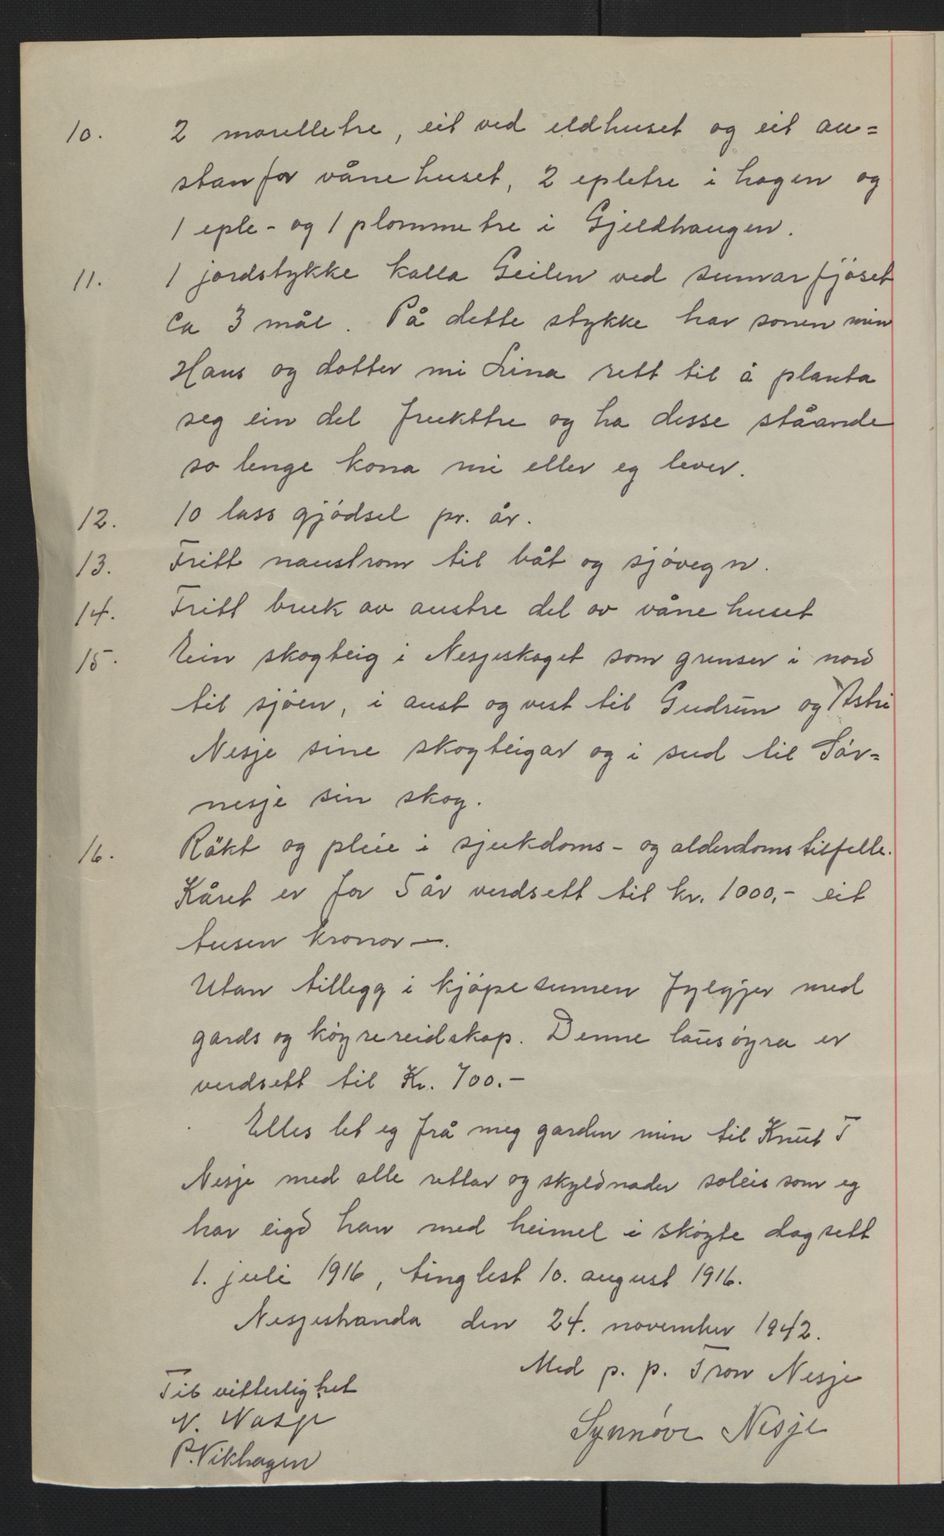 10. 2 morelletre, eit ved eldhuset og eit au=
stanfor vånehuset, 2 epletre i hagen og
1 eple- og 1 plommetre i Gjeldhaugen.
11. 1 jordstykke kalla Geilen ved sumarfjöset
Ca 3 mål. På dette stykke har sonen min
Hans og dotter mi Lina rett til å planta
seg ein del frukttre og ha desse ståande
so lenge kona mi eller eg lever.
12. 10 lass gjödsel pr. år.
13. Fritt naustrom til båt og sjövegn.
14. Fritt bruk av austre del av våne huset
15. Ein skogteig i Nesjeskoget som grenser i nord
til sjöen, i aust og vest til Gudrun og Astri
Nesje sine skogteigar og i sud til Sör=
nesje sin skog.
16. Räkt og pleie i sjukdoms- og alderdomstilfelle.
Kåret er for 5 år verdsett til kr. 1000,- eit
tusen kronor —.
Utan tillegg i kjöpesumen fylgjer med
gards og köyrereidskap. Denne lausöyra er
verdsett til Kr. 700.-
Elles let eg frå meg garden min til Knut T
Nesje med alle rettar og skyldnader soleis som eg
har eigd han med heimel i sköyte dagsett
1. juli 1916, tinglest 10. august 1916.
Nesjestranda den 24. november 1942.
Med p. p. Tron Nesje
Til vitterlighet
Synnöve Nesje
N. Nasje
P. Vikhagen